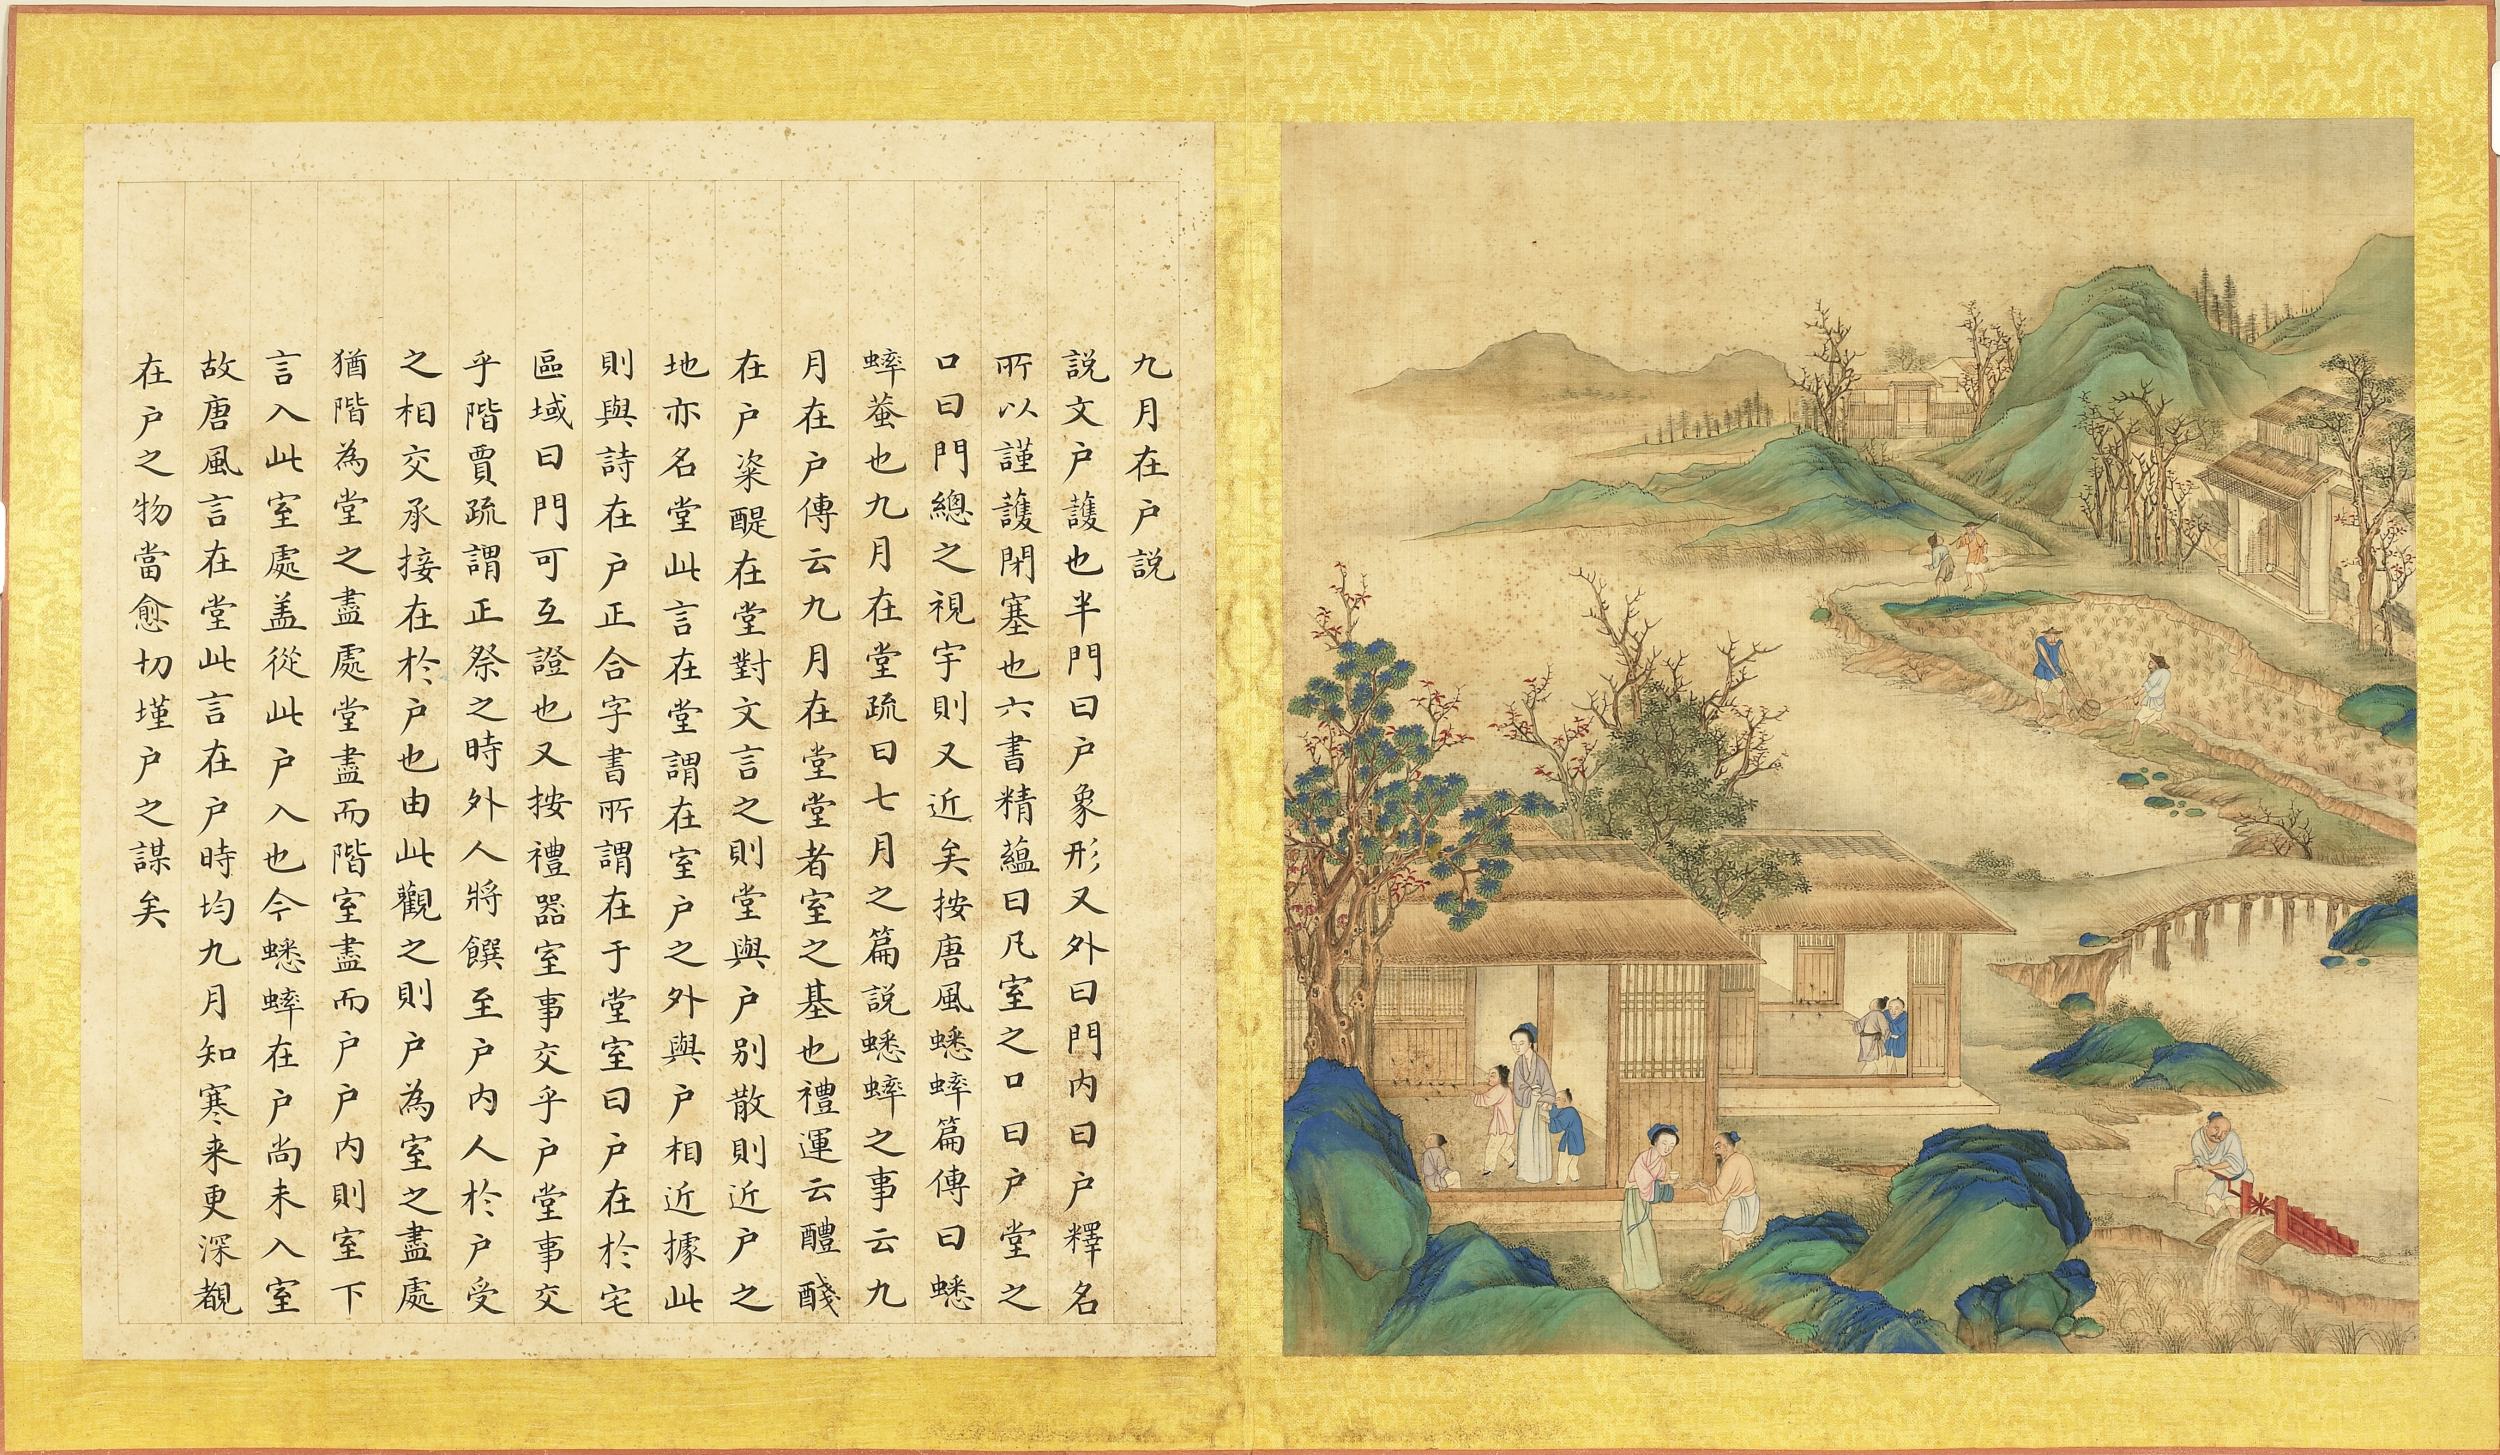 九月在戸説
説文戸護也半門曰戸象形又外曰門内曰戸釋名
所以謹護閉塞也六書精蘊曰凡室之口曰戸堂之
口曰門總之視宇則又近矣按唐風蟋蟀篇傳曰蟋
蟀蛬也九月在堂疏曰七月之篇説蟋蟀之事云九
月在戸傳云九月在堂堂者室之基也禮運云醴醆
在戸粢醍在堂對文言之則堂與戸别散則近戸之
地亦名堂此言在堂謂在室戸之外與戸相近據此
則與詩在戸正合字書所謂在于堂室曰戸在於宅
區域曰門可互證也又按禮器室事交乎戸堂事交
乎階賈疏謂正祭之時外人將饌至戸内人於戸受
之相交承接在於戸也由此觀之則戸為室之盡處
猶階為堂之盡處堂盡而階室盡而戸戸内則室下
言入此室處盖從此戸入也今蟋蟀在戸尚未入室
故唐風言在堂此言在戸時均九月知寒来更深覩
在戸之物當愈切墐戸之謀矣